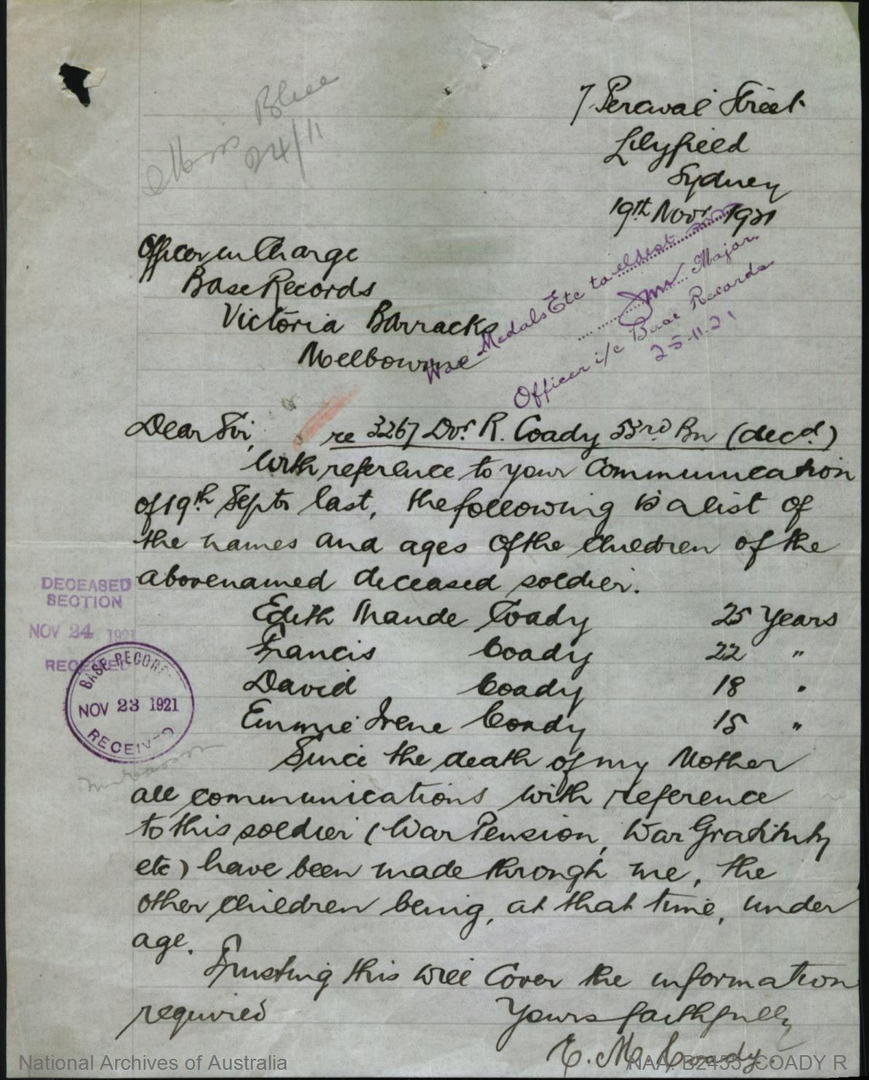 Miss Blue
24/11
7 Percival Street
Lilyfield
Sydney
19th Novr 1921
Officer in Charge
Base Records
Victoria Barracks
Melbourne
War Medals Etc to eldest son
Major.
Officer i/c Base Records
25.11.21
Dear Sir,
re 3267 Dvr R. Coady 53rd Bn (decd)
With reference to your communication
of 19th Septr last, the following is a list of
the names and ages of the children of the
abovenamed deceased soldier.
Edith Maude Coady 25 Years
Francis Coady 22 "
David Coady 18 "
Emmie Irene Coady 15 "
DECEASED
SECTION
NOV 24 1921
RECEIVED
BASE RECORDS
NOV 23 1921
RECEIVED
Since the death of my Mother
all communications with reference
to this soldier (War Pension, War Gratuity
etc) have been made through me, the
other children being, at that time, under
age.
Trusting this will cover the information
required
Yours faithfully
E. M. Coady.
National Archives of Australia
NAA: B2455, COADY R